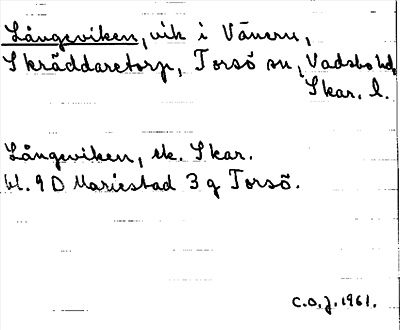 Långeviken, vik i Vänern,
Skräddaretorp, Torsö sn, Vadsbo hd,
Skar. l.
Långeviken, ek. Skar.
bl. 9 D Mariestad 3 g Torsö.
C.O.J. 1961.